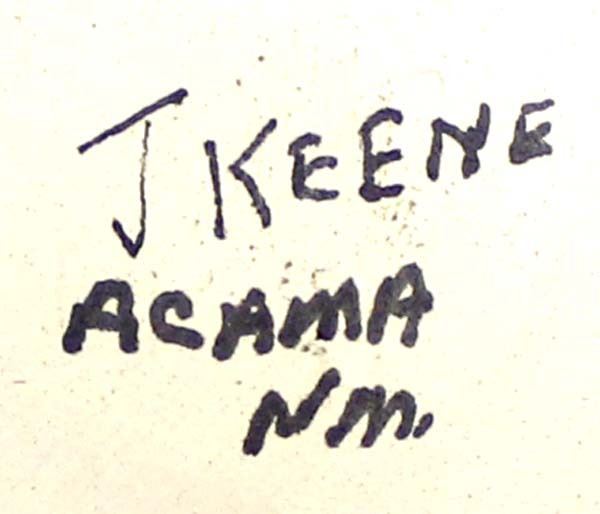 J KEENE
ACAMA
NM.